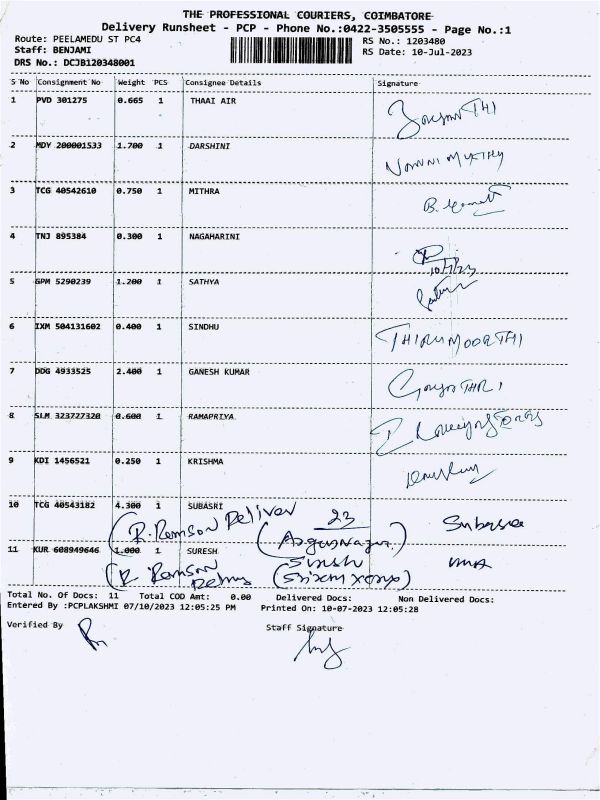 THE PROFESSIONAL COURIERS, COIMBATORE
Delivery Runsheet - PCP - Phone No.:0422-3505555 - Page No.:1
Route: PEELAMEDU ST PC4 RS No.: 1203480
Staff: BENJAMI RS Date: 10-Jul-2023
DRS No.: DCJB120348001
S No Consignment No Weight PCS Consignee Details Signature
1 PVD 301275 0.665 1 THAAI AIR
2 MDY 200001533 1.700 1 DARSHINI
3 TCG 40542610 0.750 1 MITHRA
4 TNJ 895384 0.300 1 NAGAHARINI
10/7/23
5 GPM 5290239 1.200 1 SATHYA
6 IXM 504131602 0.400 1 SINDHU THIRUMOORTHI
7 DDG 4933525 2.400 1 GANESH KUMAR
8 SLM 323727320 0.600 1 RAMAPRIYA
9 KDI 1456521 0.250 1 KRISHMA
10 TCG 40543182 4.300 1 SUBASRI
(R. Ramson Deliver 23
11 KUR 608949646 1.000 1 SURESH
(R Ramson
Total No. Of Docs: 11 Total COD Amt: 0.00 Delivered Docs: Non Delivered Docs:
Entered By :PCPLAKSHMI 07/10/2023 12:05:25 PM Printed On: 10-07-2023 12:05:28
Verified By Staff Signature